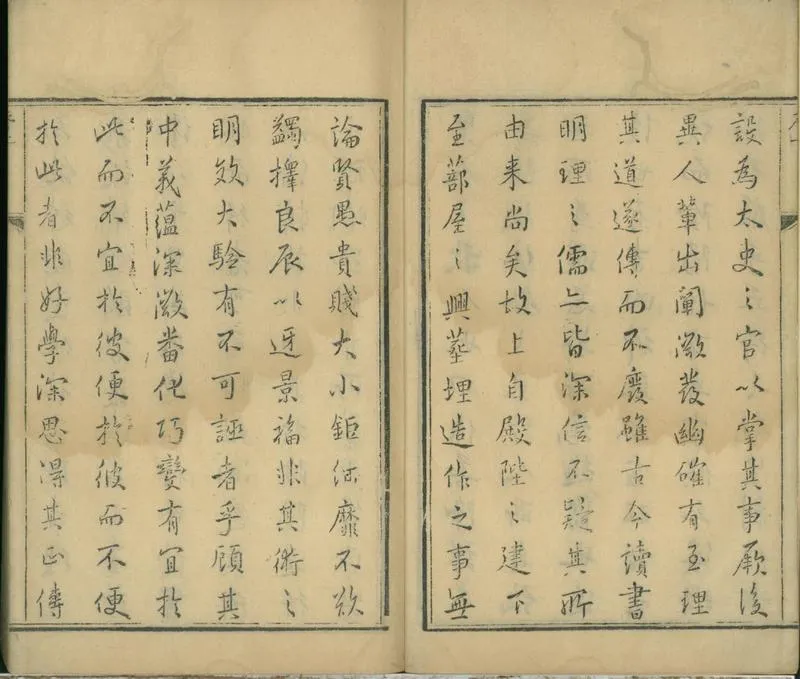 設為太史之官以掌其事厥後
異人輩出闡微發幽確有至理
其道遂傳而不廢雖古今讀書
明理之儒亦皆深信不疑其所
由来尚矣故上自殿陛之建下
至蔀屋之興葬埋造作之事無
論賢愚貴賤大小鉅細靡不欲
蠲擇良辰以迓景福非其術之
明效大驗有不可誣者乎顧其
中義蘊深微番化巧變有宜於
此而不宜於彼便於彼而不便
於此者非好學深思得其正傳